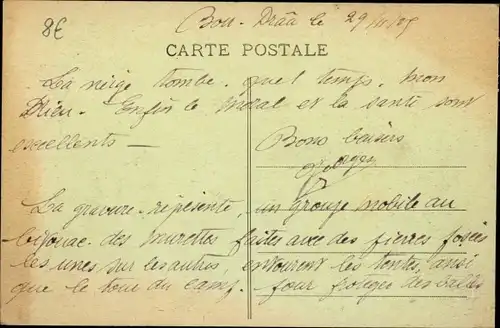 8€
Bou-Drâa le 29/11/25
CARTE POSTALE
La neige tombe. quel temps. mon
Dieu. Enfin le moral et la santé sont
excellents —
Bons baisers
Georges
La gravure représente, un groupe mobile au
bivouac. des murettes faites avec des pierres posées
les unes sur les autres, entourent les tentes, ainsi
que le tour du camp. pour protéger des balles